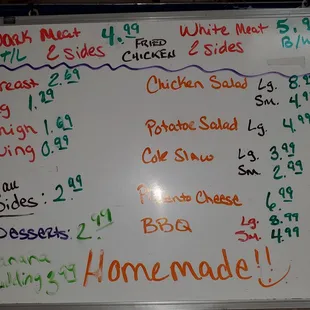 Dark Meat 4.99 FRIED CHICKEN White Meat 5.9
T/L 2 Sides 2 Sides B/W
reast 2.69
g 1.29
high 1.69
wing 0.99
Sides: 2.99
Desserts: 2.99
anana
udding 3.99
Chicken Salad Lg. 8.9
Sm. 4.9
Potatoe Salad Lg. 4.9
Cole Slaw Lg. 3.99
Sm. 2.99
Pimento Cheese 6.99
BBQ Lg. 8.99
Sm. 4.99
Homemade!!